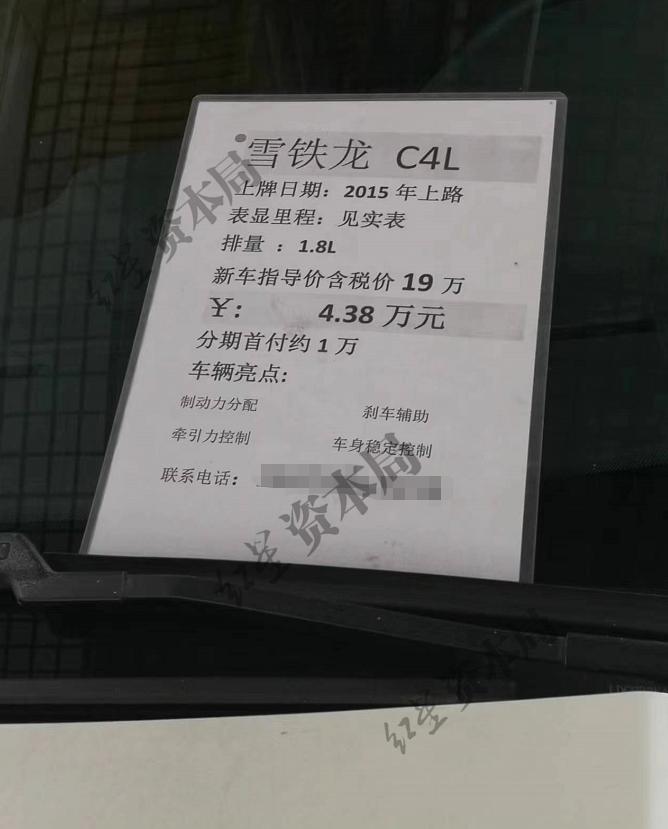 雪铁龙 C4L
上牌日期：2015 年上路
表显里程：见实表
排量 ：1.8L
新车指导价含税价 19 万
￥： 4.38 万元
分期首付约 1 万
车辆亮点:
制动力分配 刹车辅助
牵引力控制 车身稳定控制
联系电话：
红星 资本局
红星 资本局
红星 资本局